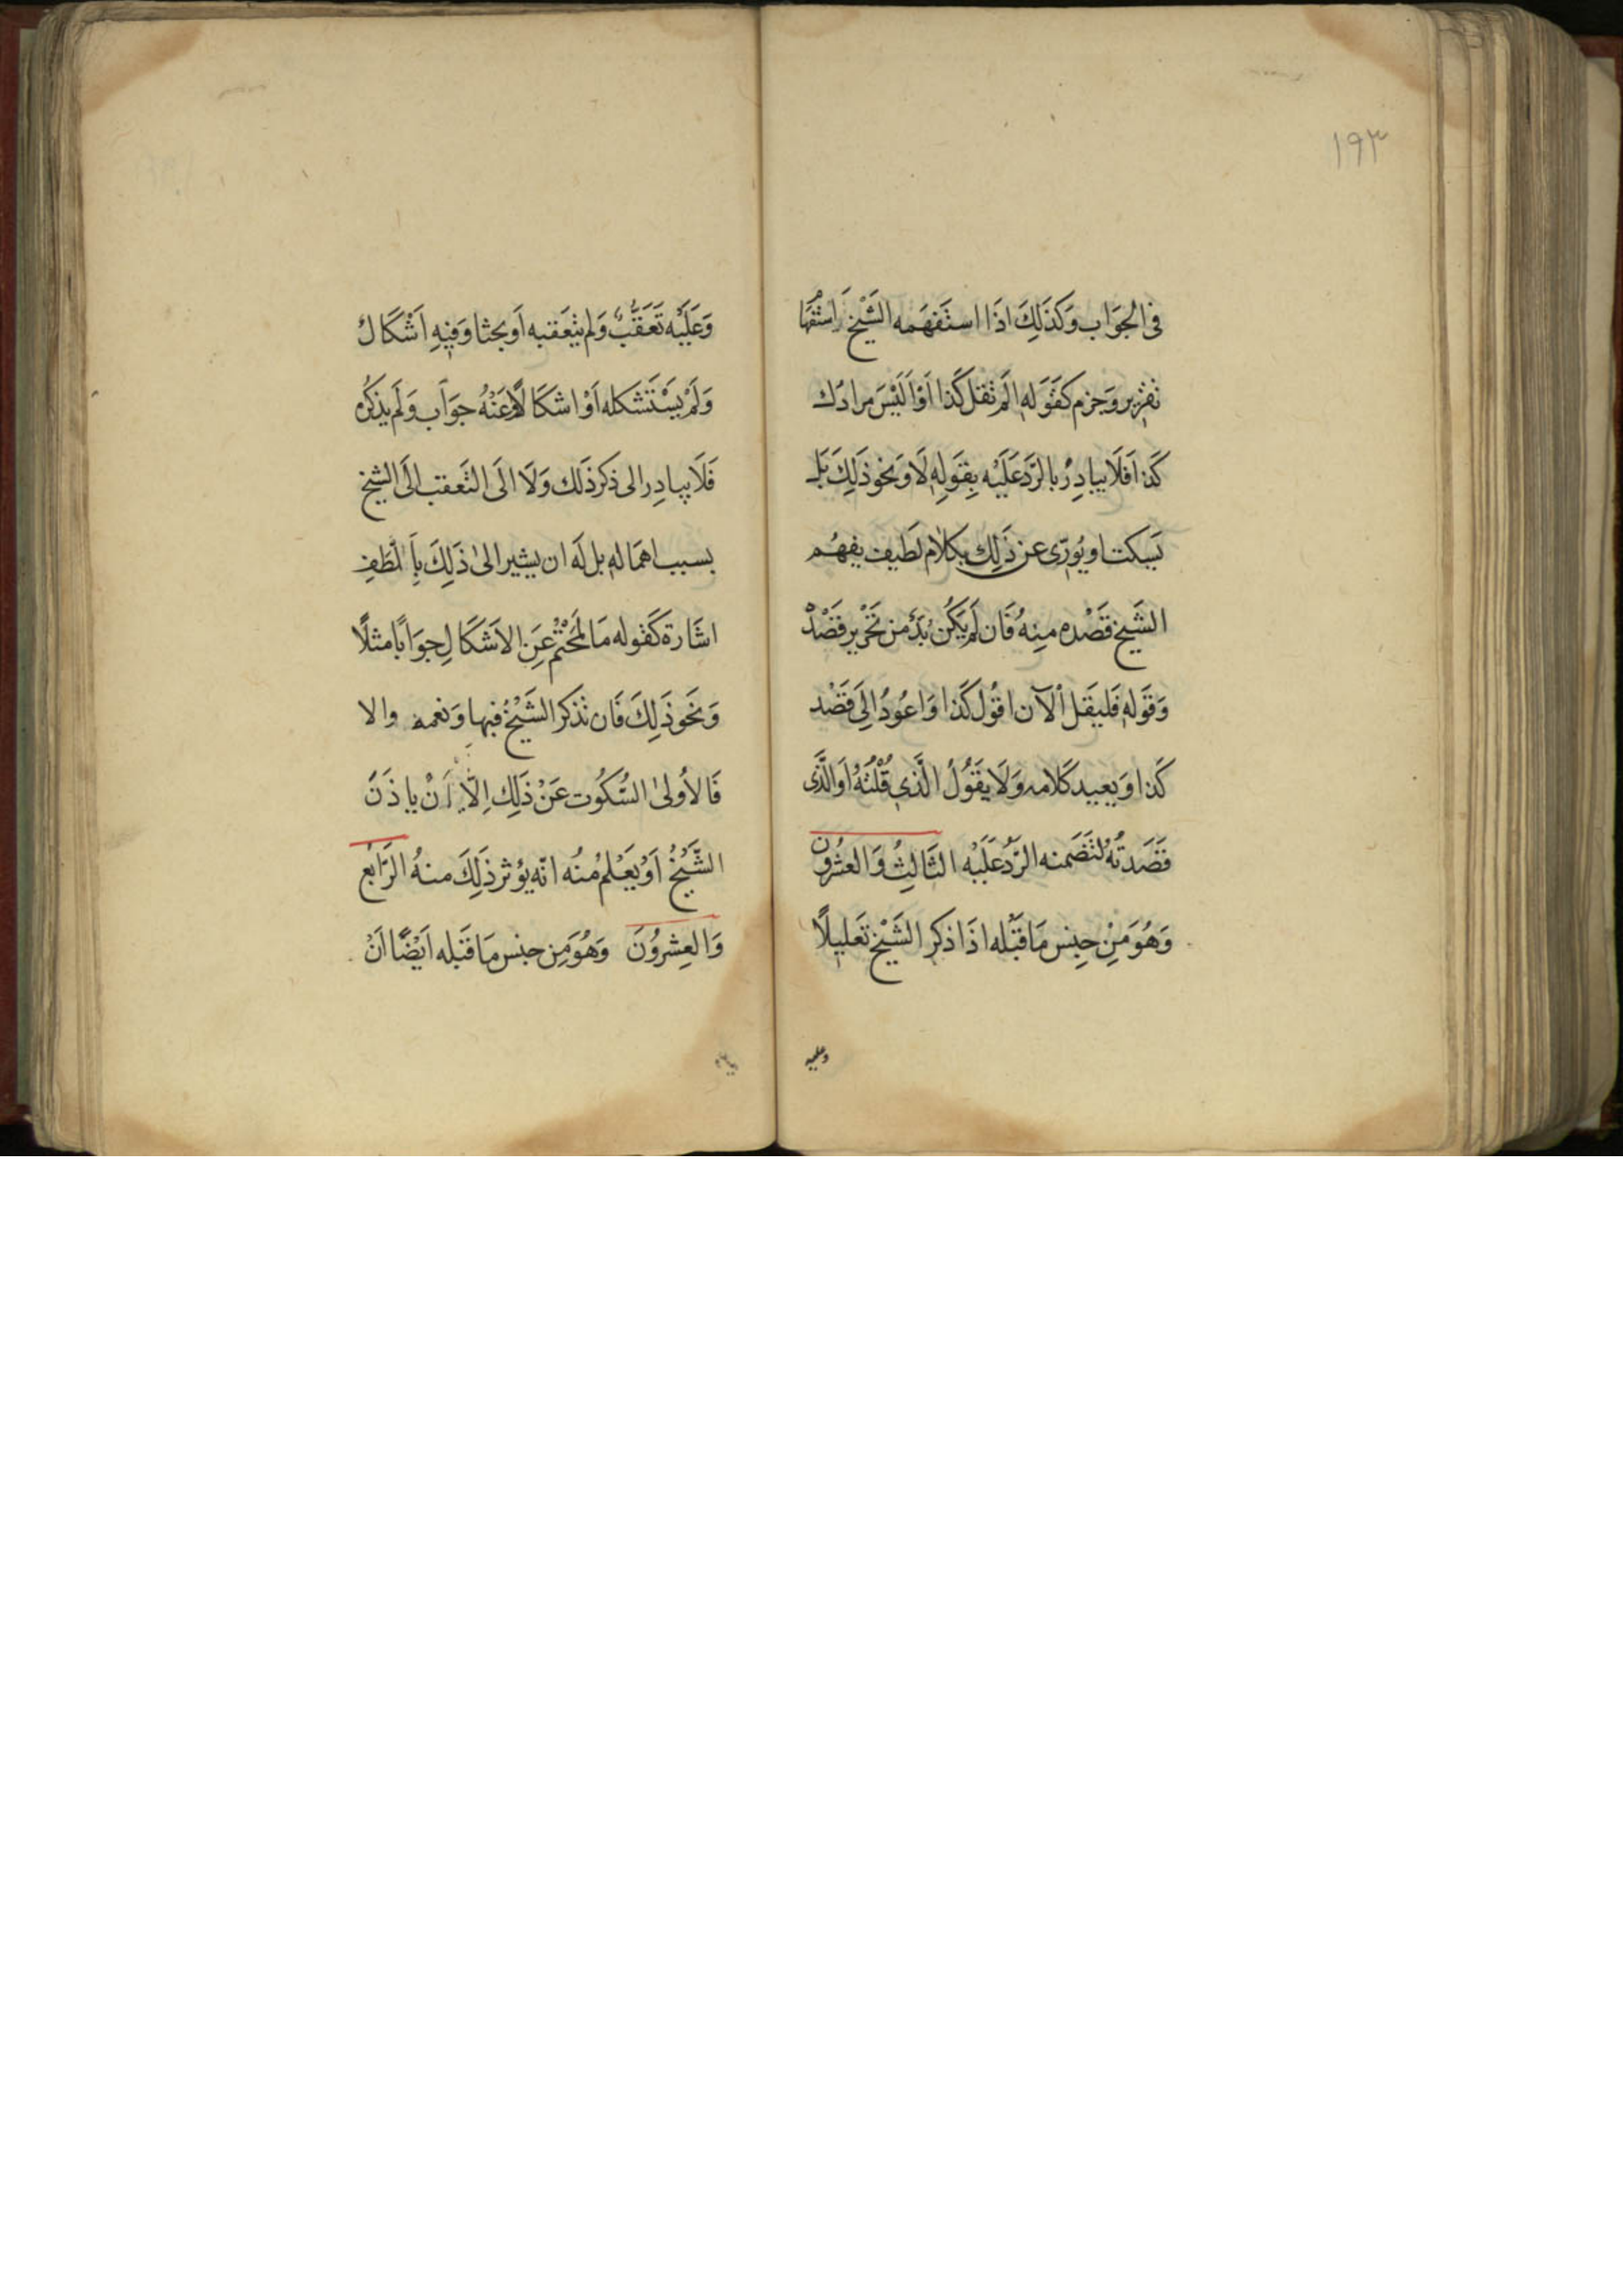 ١٩٣
فى الجَوَاب وَكَذَلِكَ اذَا استَفهَمَه الشَّيْخ اسْتْفهَا
تقرير وَجزم كقَوَله الَم تقل كَذا اَوْ اَلَيْسَ مرادُك
كَذا فَلَا يبادِرْ بالرَّد عَلَيْه بِقَولِهِ لَا وَنَحْو ذَلِكَ بَل
يَسكت او يُورّى عن ذَلِكَ بكلام لَطيف يفهُم
الشَيخ قَصْده مِنِهُ فَان لَم يَكُنْ بُدّ من تَحْرِير قَصْدْ
وَقَوَله فَليقَل اْلآن اقُول كَذا وَاعُودُ الىَ قَصْد
كَذا وَيعيد كَلامه وَلَا يقَوُلُ الَّذى قُلْتَهُ اَوالَّذى
قَصَدتُه لتَضَمنه الرَّدُّ عَلَيْه الثَالِثُ وَالعشرُون
وَهُوَ مِنْ جِنِس مَا قَبْله اذَا ذكر الشَيْخ تَعَليلًا
وعليه
وَعَلَيْه تَعَقَّبٌ وَلم يتعَقبه اَو بحثا وَفِيهِ اَشْكَالُ
وَلَمْ يسْتَشكله اَوْ اشكَالًا وَعَنْهُ جَوَاب وَلَم يذكرُه
فَلَا يبادِر الى ذكر ذَلك وَلَا الَى التَعقب الَى الشيخ
بسبب اهمَاله بل لَه ان يشير الىٰ ذَلِكَ بِاَلْطَفِ
اشَارة كَقوله مَا لمَحْتْم عَنِ الاَشكَال جوَابًا مثلًا
وَنحَو ذَلِكَ فَان تذكر الشَيْخُ فبها وَنعمه والا
فَالأُولىٰ السُّكُوت عَنْ ذَلِك اِلّا اَنْ ياذَنَ
الشَّيْخُ اَوْ يَعْلم مُنْه انّه يؤثر ذَلِكَ منهُ الرّابَع
وَالعِشروُنَ وَهُوَ مِن جنس مَا قبَله اَيْضًا اَنْ